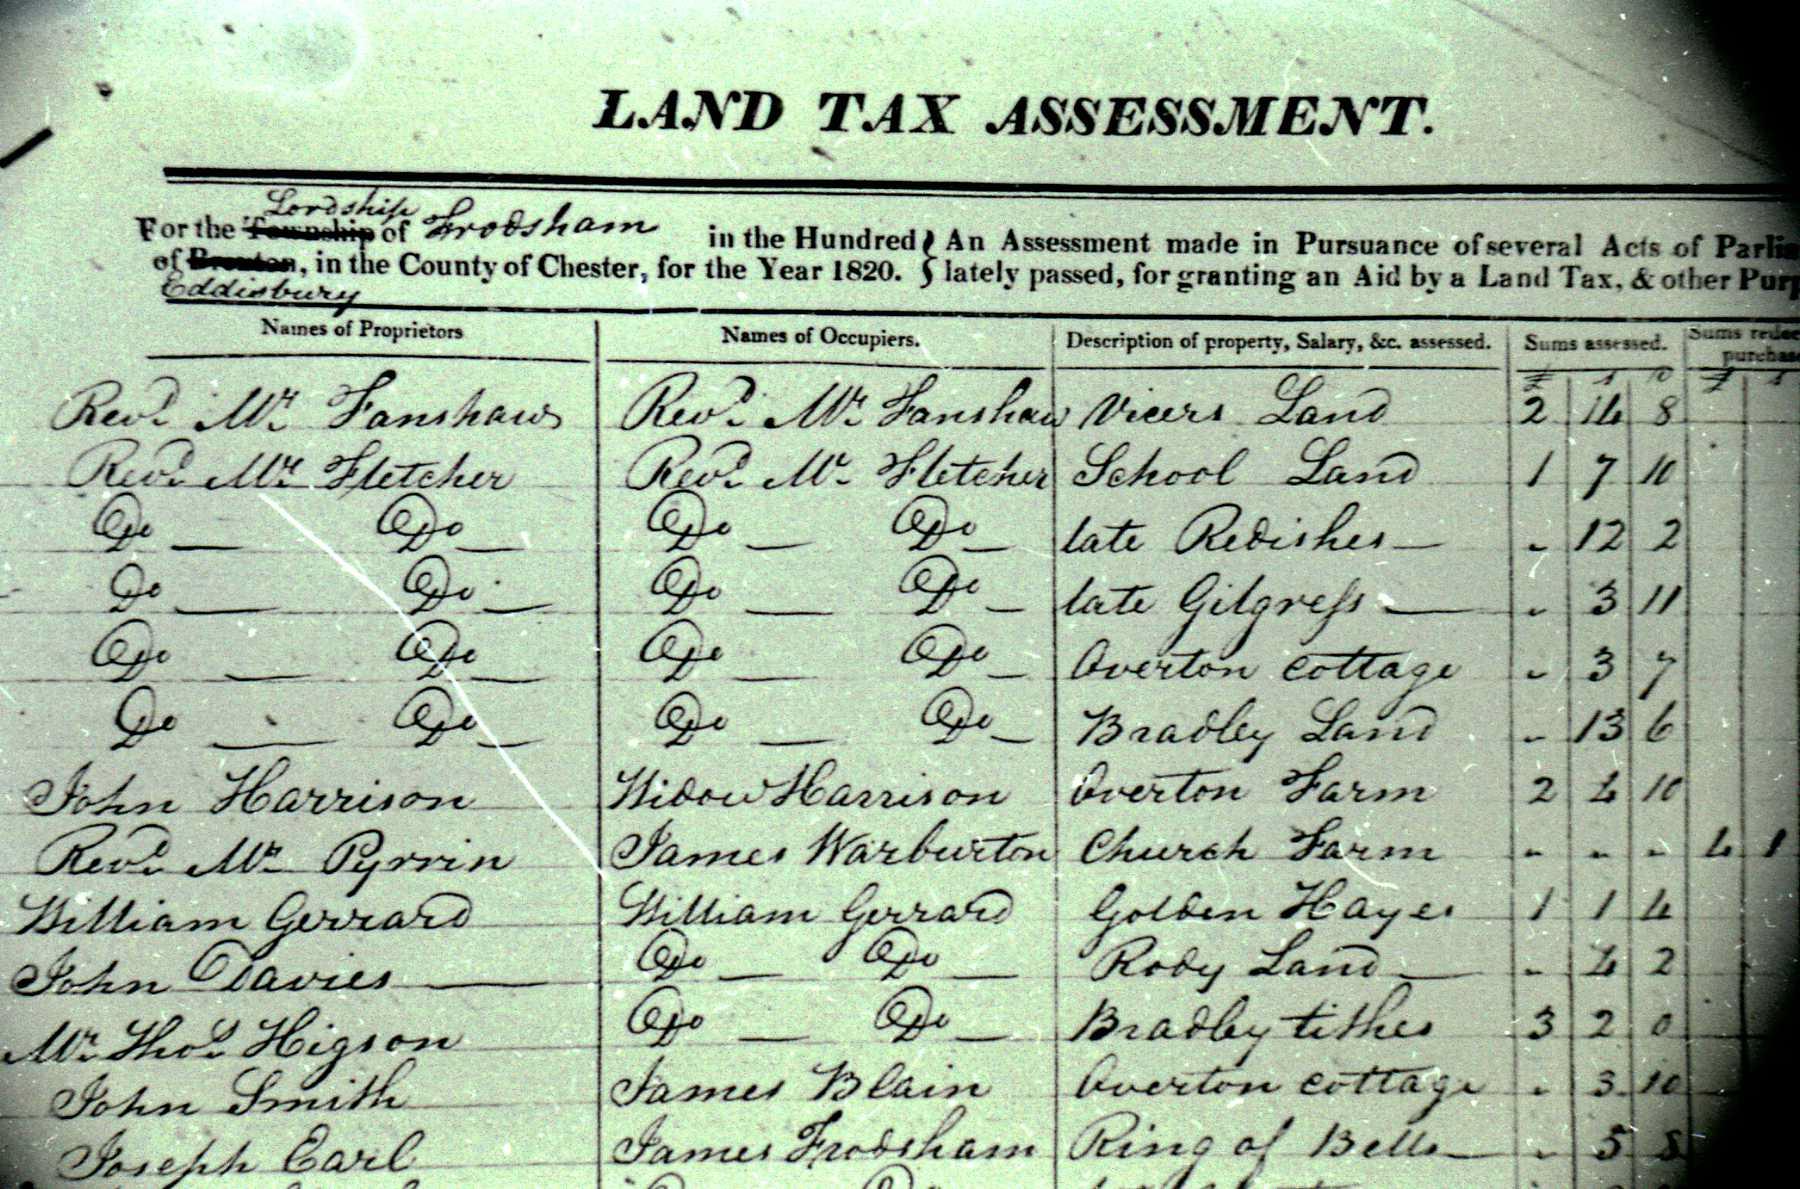 LAND TAX ASSESSMENT.
Lordship
For the Township of Frodsham in the Hundred } An Assessment made in Pursuance of several Acts of
of Broxton, in the County of Chester, for the Year 1820. } lately passed, for granting an Aid by a Land Tax, & other
Eddisbury
Names of Proprietors Names of Occupiers. Description of property, Salary, &c. assessed. Sums assessed. Sums
£ s D £ s
Revd. Mr. Fanshaw Revd. Mr. Fanshaw Vicers Land 2 14 8
Revd. Mr. Fletcher Revd. Mr. Fletcher School Land 1 7 10
Do — Do — Do — Do — late Redishes — - 12 2
Do — Do — Do — Do — late Gilgress — - 3 11
Do — Do — Do — Do — Overton cottage - 3 7
Do — Do — Do — Do — Bradley Land - 13 6
John Harrison Widow Harrison Overton Farm 2 4 10
Revd. Mr. Pyrrin James Warburton Church Farm - - - 4 1
William Gerrard William Gerrard Golden Hayes 1 1 4
John Davies — Do — Do — Rody Land — - 4 2
Mr. Thos. Higson Do — Do — Bradley tithes 3 2 0
John Smith James Blain Overton cottage - 3 10
Joseph Earl James Frodsham Ring of Bells — - 5 8